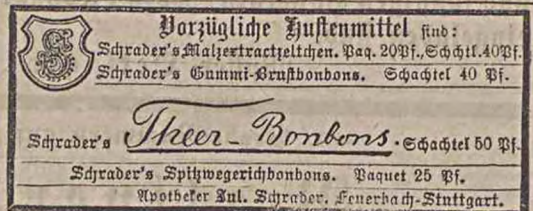 Vorzügliche Hustenmittel sind:
Schrader's Malzextractzeltchen. Paq. 20Pf., Schchtl. 40Pf.
Schrader's Gummi-Brustbonbons. Schachtel 40 Pf.
Schrader's Theer-Bonbons. Schachtel 50 Pf.
Schrader's Spitzwegerichbonbons. Paquet 25 Pf.
Apotheker Jul. Schrader, Feuerbach-Stuttgart.